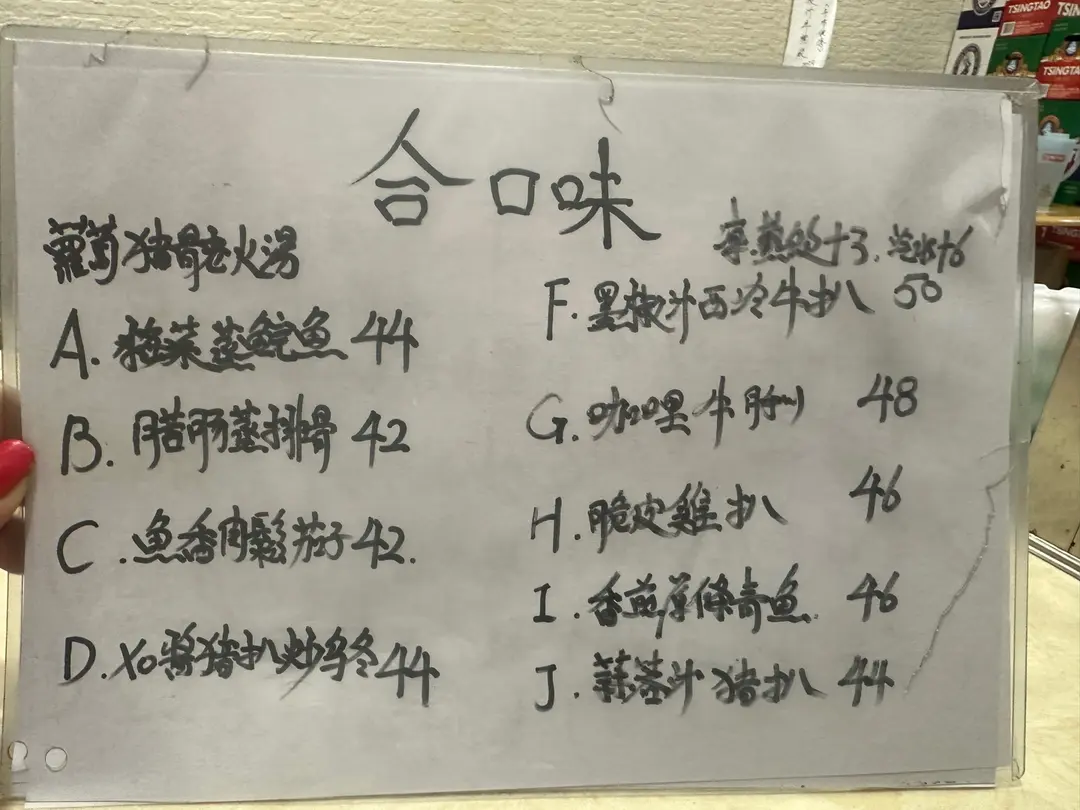 合口味
蘿蔔猪骨老火湯
A. 梅菜蒸鯇魚 44
B. 腊肠蒸排骨 42
C. 魚香肉鬆茄子 42.
D. XO醬猪扒炒
44
凍熱飲+3. 汽水+6
F. 黑椒汁西冷牛扒 50
G. 咖哩牛腩 48
H. 脆皮雞扒 46
I. 香煎原條青魚 46
J. 蒜蓉汁猪扒 44
TSINGTAO
TSINGTAO
TSINGTAO